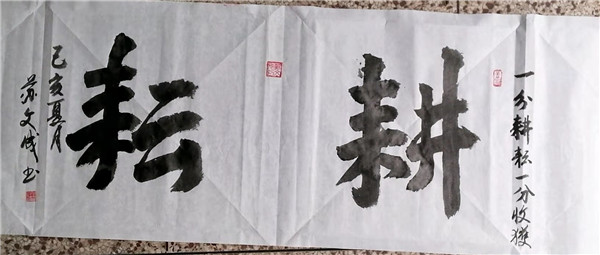 一分耕耘一分收獲
耕耘
己亥夏月
苏文成书